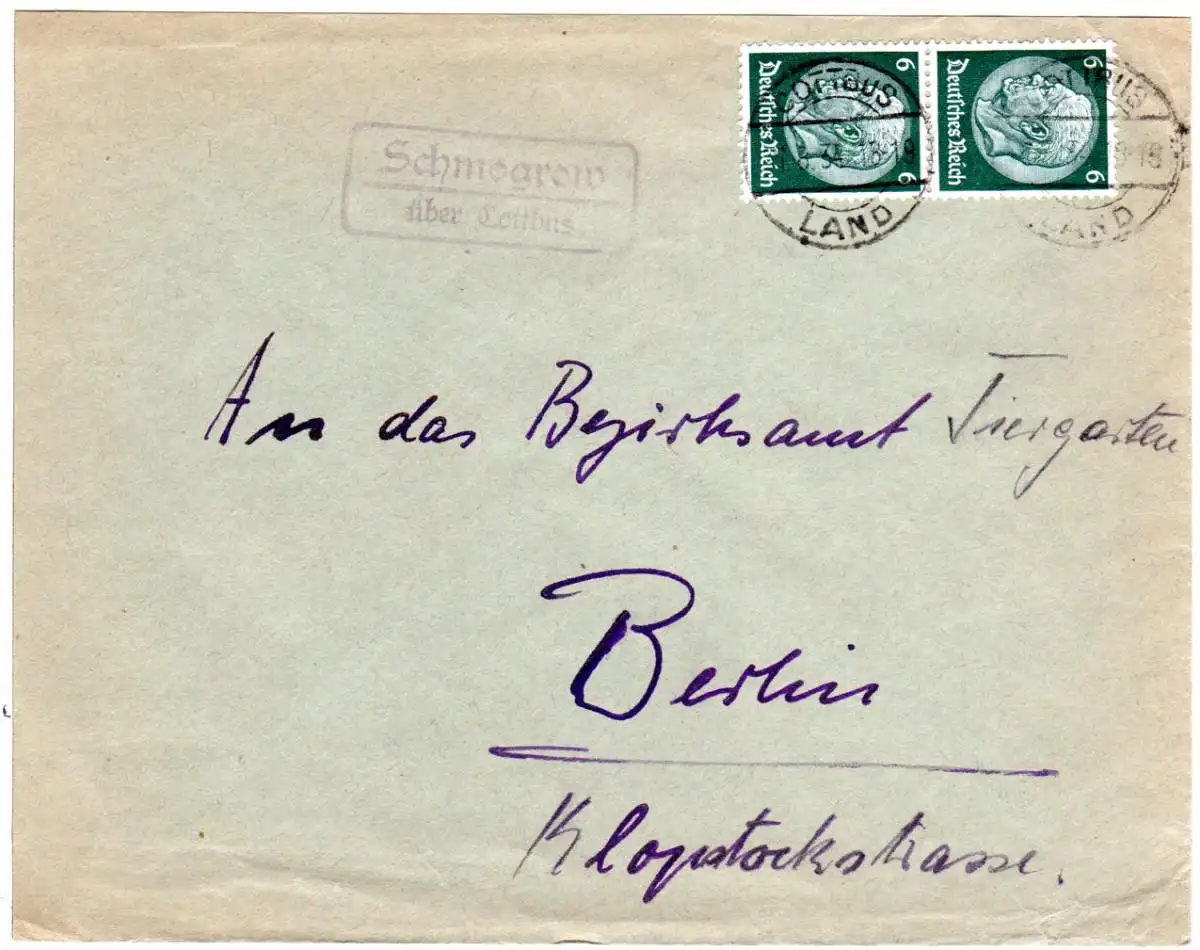 Schmogrow
über Cottbus
6 Deutsches Reich 6
6 Deutsches Reich 6
COTTBUS
18-19
LAND
LAND
An das Bezirksamt Tiergarten
Berlin
Klopstockstrasse.